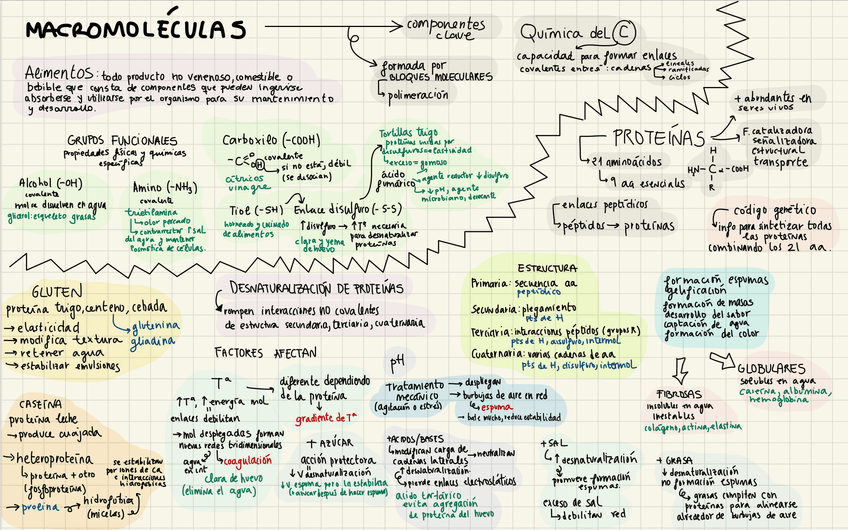 MACROMOLÉCULAS
componentes
clave
formada por
BLOQUES MOLECULARES
polimeración
Química del C
capacidad para formar enlaces
covalentes entres: cadenas
lineales
ramificadas
ciclos
Alimentos: todo producto no venenoso, comestible o
bebible que consta de componentes que pueden ingerirse
absorberse y utilizarse por el organismo para su mantenimiento
y desarrollo.
GRUPOS FUNCIONALES
propiedades físicas y químicas
específicas
Alcohol (-OH)
covalente
molec disuelven en agua
glicerol: esqueleto grasas
Amino (-NH₂)
covalente
trietilamina
olor pescado
contrarrestar ↑ sal
del agua y mantener
osmótica de células.
Carboxilo (-COOH)
covalente
si no está, débil
(se disocian)
cítricos
vinagre
Tiol (-SH)
horneado y leudado
de alimentos
Enlace disulfuro (-S-S)
↑ disulfuro → ↑Tª necesaria
para desnaturalizar
proteínas
clara y yema
de huevo
Tortillas trigo
proteínas unidas por
disulfuros = elasticidad
exceso = gomoso
ácido
fumárico
agente reductor ↓ disulfuro
↓ pH, agente
microbiano,
PROTEÍNAS
+ abundantes en
seres vivos
F. catalizadora
señalizadora
estructural
transporte
21 aminoácidos
9 aa esenciales
H
HN-C-COOH
R
enlaces peptídicos
péptidos → proteínas
código genético
info para sintetizar todas
las proteínas
combinando los 21 aa.
GLUTEN
proteína trigo, centeno, cebada
→ elasticidad
→ modifica textura
→ retener agua
→ estabilizar emulsiones
glutenina
gliadina
DESNATURALIZACIÓN DE PROTEÍNAS
rompen interacciones NO covalentes
de estructura secundaria, terciaria, cuaternaria
ESTRUCTURA
Primaria: secuencia aa
peptídico
Secundaria: plegamiento
pts de H
Terciaria: interacciones péptidos (grupos R)
pts de H, disulfuro, intermol
Cuaternaria: varias cadenas de aa
pts de H, disulfuro, intermol
formación espumas
gelificación
formación de masas
desarrollo del sabor
captación de agua
formación del color
FIBROSAS
insolubles en agua
inestables
colágeno, actina, elastina
GLOBULARES
solubles en agua
caseína, albúmina,
hemoglobina
FACTORES AFECTAN
CASEÍNA
proteína leche
→ produce cuajada
→ heteroproteína
proteína + otro
(fosfoproteína)
→ proteína
hidrofóbica
(micelas)
se estabilizan
por iones de Ca
e interacciones
hidrofóbicas
Tª
↑Tª, ↑energía mol
enlaces debilitan
→ mol desplegadas forman
nuevas redes tridimensionales
agua
en int
coagulación
clara de huevo
(elimina el agua)
diferente dependiendo
de la proteína
gradiente de Tª
+ AZÚCAR
acción protectora
↓ desnaturalización
↓ espuma pero la estabiliza
(+ azúcar después de hacer espuma)
pH
Tratamiento
mecánico
(agitación o estrés)
→ despliegan
→ burbujas de aire en red
espuma
→ bate mucho, reduce estabilidad
+ ÁCIDOS/BASES
modifican carga de
cadenas laterales
neutralizan
↑ desnaturalización
pierde enlaces electrostáticos
ácido tartárico
evita agregación
de proteína del huevo
+ SAL
↑ desnaturalización
promueve formación
espumas.
exceso de sal
debilitan red
+ GRASA
↓ desnaturalización
no formación espumas
grasas compiten con
proteínas para alinearse
alrededor de burbujas de aire